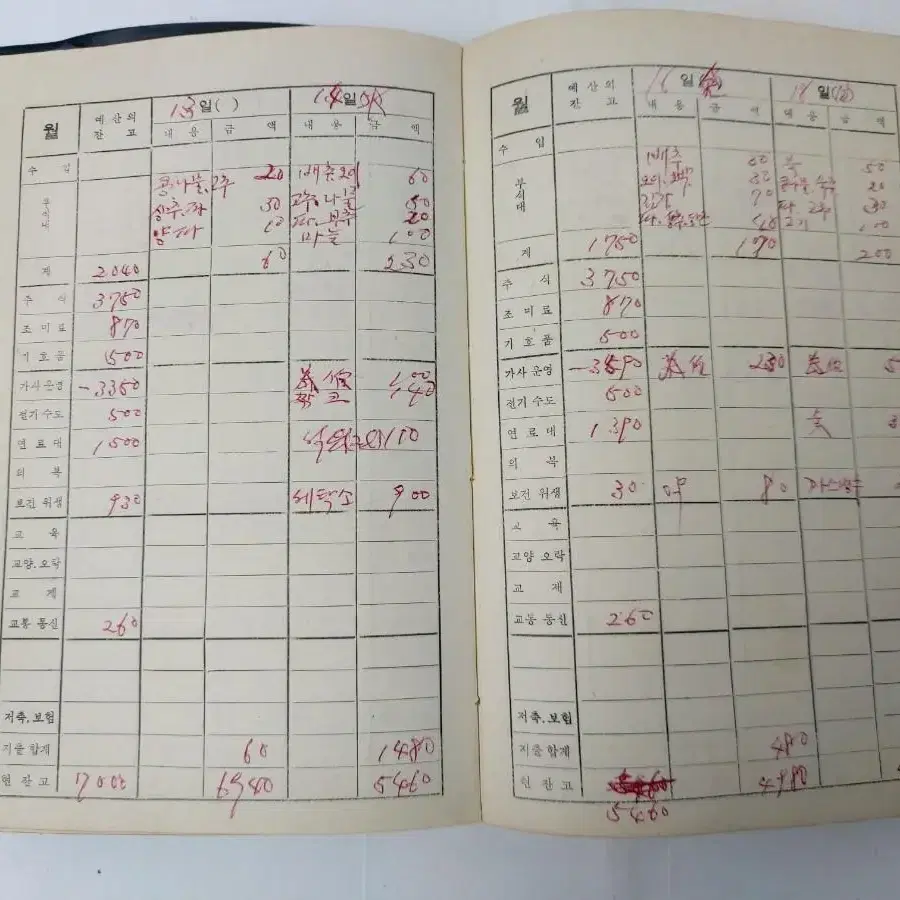 월 예산의 잔고 13일( ) 14일(
내용 금액 내용 금액
수입
부식대 콩나물.고추 20 배추오이 60
상추.파 30 고추.나물 50
양파 10 파.부추 20
마늘 100
계 2040 60 230
주식 3750
조미료 870
기호품 500
가사운영 -3350 100
140
전기수도 500
연료대 1500 110
의복
보건위생 930 세탁소 900
교육
교양.오락
교제
교통통신 260
저축.보험
지출합계 60 1480
현잔고 7000 6940 5460
월 예산의 잔고 16일( 일(
내용 금액 내용 금액
수입
부식대 배추 50
콩나물. 20
파.고추 30
고기 100
계 1750 190 200
주식 3750
조미료 870
기호품 500
가사운영 230
전기수도 500
연료대 1390
의복
보건위생 30 약 80
교육
교양오락
교제
교통통신 260
저축.보험
지출합계 480
현잔고 4980
5460